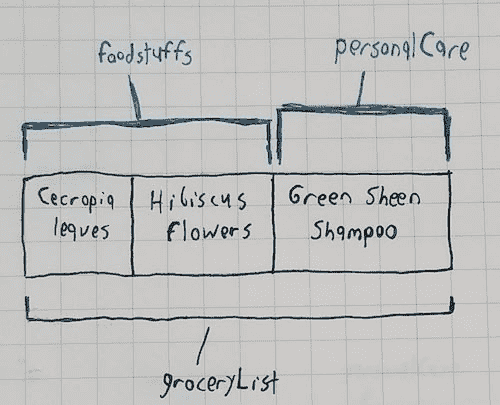 foodstuffs
personalCare
Cecropia
leaves
Hibiscus
flowers
Green Sheen
Shampoo
groceryList